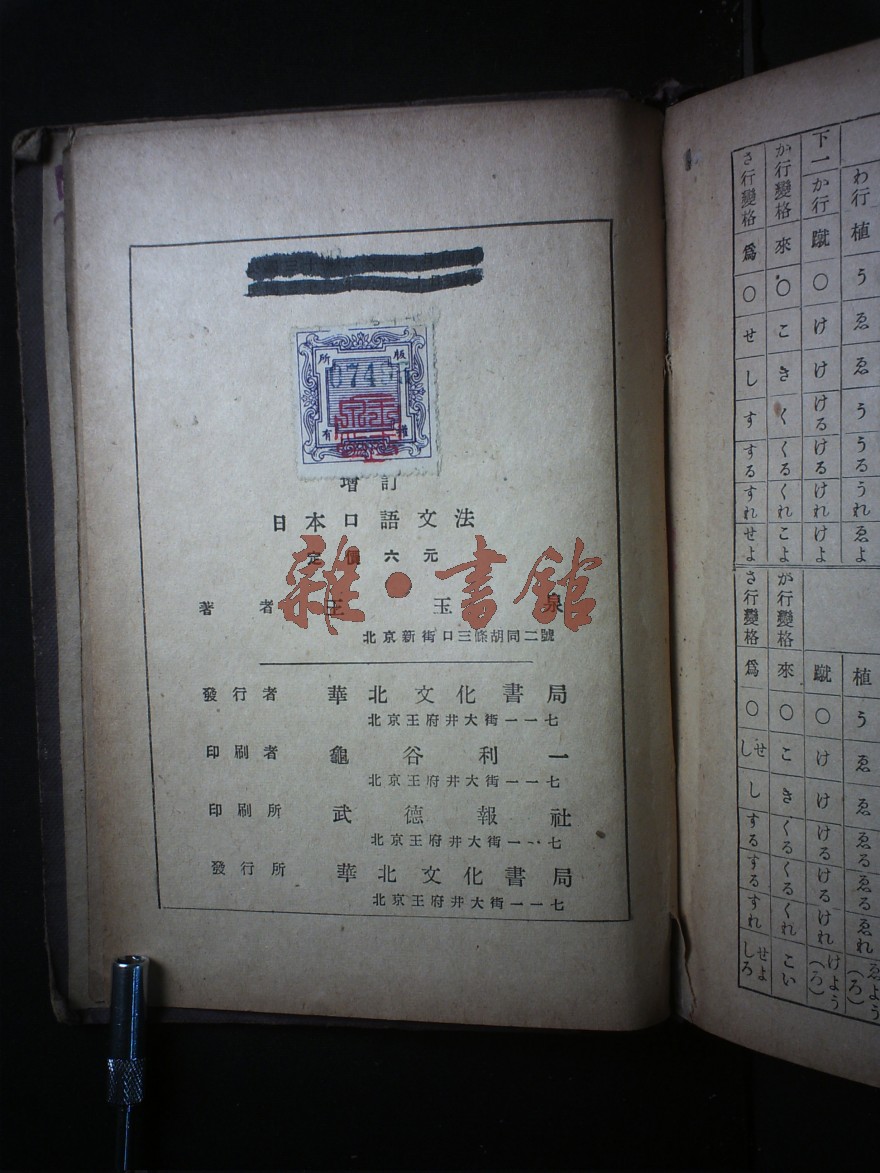 版權所有
增訂
日本口語文法
定價六元
著者 王玉泉
北京新街口三條胡同二號
發行者 華北文化書局
北京王府井大街一一七
印刷者 龜谷利一
北京王府井大街一一七
印刷所 武德報社
北京王府井大街一一七
發行所 華北文化書局
北京王府井大街一一七
雜·書館
わ行 植 う ゑ ゑ う うる うれ ゑよ
下一か行 蹴 〇 け け ける ける けれ けよ
か行變格 來 〇 こ き く くる くれ こよ
さ行變格 爲 〇 せ し す する すれ せよ
植 う ゑ ゑ ゑる ゑる ゑれ ゑよう(ろ)
蹴 〇 け け ける ける けれ けよう(ろ)
か行變格 來 〇 こ き くる くる くれ こい
さ行變格 爲 〇 せし し する する すれ せよしろ